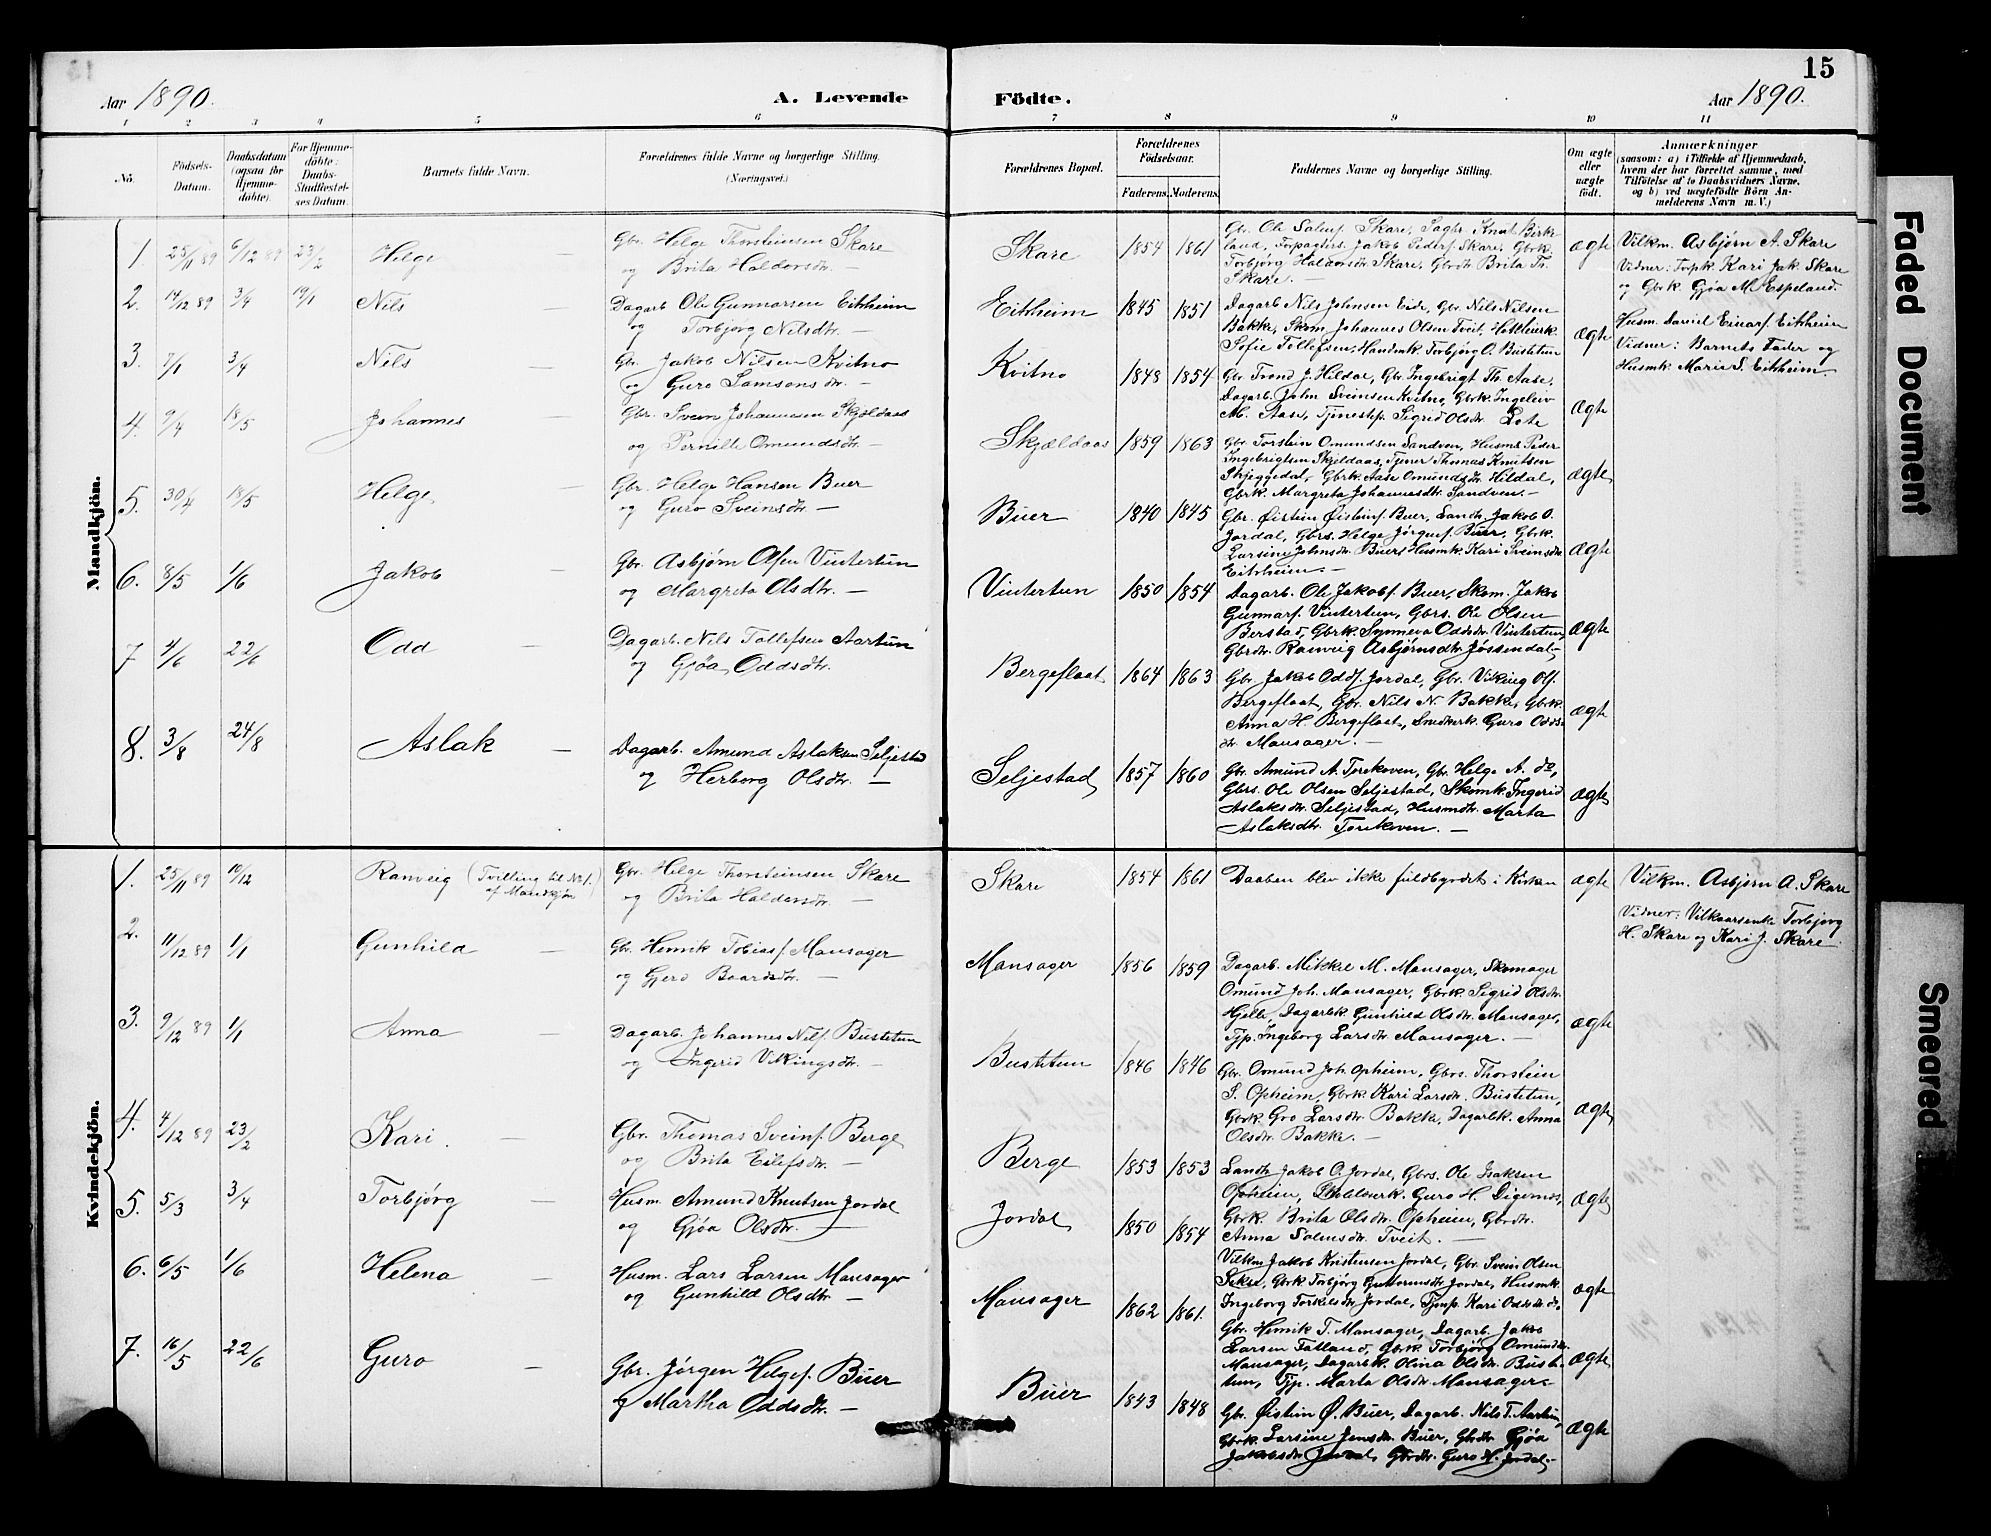 15
Aar 1890. A. Levende Födte. Aar 1890.
1 2 3 4 5 6 7 8 9 10 11
No. Födsels-Datum. Daabsdatum (ogsaa for Hjemmedöbte). For Hjemmedöbte: Daabs-Stadfæstelses Datum. Barnets fulde Navn. Forældrenes fulde Navne og borgerlige Stilling. (Næringsvei.) Forældrenes Bopæl. Forældrenes Födselsaar. Faderens. Moderens. Faddernes Navne og borgerlige Stilling. Om ægte eller uægte födt. Anmærkninger (saasom: a) i Tilfælde af Hjemmedaab, hvem der har forrettet samme, med Tilföielse af to Daabsvidners Navne, og b) ved uægtefödte Börn Anmelderens Navn m. V.)
Mandkjön.
1. 25/11 89 6/12 89 23/2 Helge — Gbr. Helge Thorsteinsen Skare
og Brita Haldorsdtr. —
Skare 1854 1861
Gbr. Ole Salmf. Skare, Sagbr. Knut Birke
land, Forpagters. Jakob Pederf. Skare, Gbrk.
Torbjørg Haldorsdtr. Skare, Gbrdtr. Brita Th.
Skare. —
ægte
Vilkm. Asbjørn A. Skare
Vidner: Forpk. Kari Jak. Skare
og Gbrk. Gjøa M. Espeland.
2. 14/12 89 3/4 19/1 Nils — Dagarb. Ole Gunnarsen Eitrheim
og Torbjørg Nilsdtr. —
Eitrheim 1845 1851
Dagarb. Nils Johnsen Eide, Gbr. Nils Nilsen
Bakke, Skom. Johannes Olsen Tveit,
Sofie Tollefsen, Handmk. Torbjørg O. Bustetun
ægte
Husm. Daniel Einarf. Eitrheim
Vidner: Barnets Fader og
Husmk. Marie S. Eitrheim.
3. 7/1 3/4 Nils — Gbr. Jakob Nilsen Kvitno
og Guro Samsonsdtr. —
Kvitno 1848 1854
Gbr. Trond J. Hildal, Gbr. Ingebrigt Th. Aase,
Dagarb. John Sveinsen Kvitno, Gbrk. Ingeleiv
M. Aase, Tjenestep. Sigrid Olsdtr. Lote
ægte
4. 9/4 18/5 Johannes — Gbr. Svein Johannesen Skjældaas
og Pernille Omundsdtr. —
Skjældaas 1859 1863
Gbr. Torstein Omundsen Sandven, Husm. Peder
Ingebrigtsen Skjeldaas, Tjener Thomas Knutsen
Skjeggedal, Gbrk. Aase Omundsdtr. Hildal,
Gbrk. Margreta Johannesdtr. Sandven. —
ægte
5. 30/4 18/5 Helge — Gbr. Helge Hansen Buer
og Guro Sveinsdtr. —
Buer 1840 1845
Gbr. Øistein Øisteinf. Buer, Landh. Jakob O.
Jordal, Gbrs. Helge Jørgenf. Buer, Gbrk.
Larsine Johnsdtr. Buer, Husmk. Kari Sveinsdtr.
Eitrheim. —
ægte
6. 8/5 1/6 Jakob — Gbr. Asbjørn Olsen Vintertun
og Margreta Olsdtr. —
Vintertun 1850 1854
Dagarb. Ole Jakobf. Buer, Skom. Jakob
Gunnarf. Vintertun, Gbrs. Ole Olsen
Berstad, Gbrk. Synneva Oddsdtr. Vintertun,
Gbrdtr. Ranveig Asbjørnsdtr. Jøssendal. —
ægte
7 4/6 22/6 Odd — Dagarb. Nils Tollefsen Aartun
og Gjøa Oddsdtr. —
Bergeflaat 1864 1863
Gbr. Jakob Oddf. Jordal, Gbr. Viking Olf.
Bergeflaat, Gbr. Nils N. Bakke, Gbrk.
Anna H. Bergeflaat, Smedk. Guro Odds-
dtr. Mansager. —
ægte
8. 3/8 24/8 Aslak — Dagarb. Amund Aslaksen Seljestad
og Herborg Olsdtr. —
Seljestad 1857 1860
Gbr. Amund A. Jorekoven, Gbr. Helge A. do,
Gbrs. Ole Olsen Seljestad, Skomk. Ingerid
Aslaksdtr. Seljestad, Husmdtr. Marta
Aslaksdtr. Jorekoven. —
ægte
Kvindekjön.
1. 25/11 89 10/12 Ranveig (Tvilling til No 1. af Mandkjøn) Gbr. Helge Thorsteinsen Skare
og Brita Haldorsdtr. —
Skare 1854 1861 Daaben blev ikke fuldbyrdet i Kirken ægte
Vilkm. Asbjørn A. Skare
Vidner: Vilkaarsenke Torbjørg
H. Skare og Kari J. Skare.
2. 11/12 89 1/1 Gunhild — Gbr. Henrik Tobiasf. Mansager
og Gjero Baardsdtr. —
Mansager 1856 1859
Dagarb. Mikkel M. Mansager, Skomager
Omund Joh. Mansager, Gbrk. Sigrid Olsdtr.
Hjelle, Dagarbk. Gunhild Olsdtr. Mansager,
Tjp. Ingeborg Larsdtr. Mansager. —
ægte
3. 9/12 89 1/1 Anna — Dagarb. Johannes Nilf. Bustetun
og Ingerid Vikingsdtr. —
Bustetun 1846 1846
Gbr. Omund Joh. Opheim, Gbrs. Thorstein
S. Opheim, Gbrk. Kari Larsdtr. Bustetun,
Gbrk. Gro Larsdtr. Bakke, Dagarbk. Anna
Olsdtr. Bakke. —
ægte
4. 4/12 89 23/2 Kari. — Gbr. Thomas Sveinf. Berge
og Brita Eilefsdtr. —
Berge 1853 1853
Landh. Jakob O. Jordal, Gbrs. Ole Isaksen
Opheim, Guro H. Digernes,
Gbrk. Brita Olsdtr. Opheim, Gbrdtr.
Anna Salmsdtr. Tveit. —
ægte
5. 5/3 3/4 Torbjørg — Husm. Amund Knutsen Jordal
og Gjøa Olsdtr. —
Jordal 1850 1854
Vilkm. Jakob Kristensen Jordal, Gbr. Svein Olsen
Sekse, Gbrk. Torbjørg Guttormsdtr. Jordal, Husmk.
Ingeborg Torkilsdtr. Jordal, Tjmp. Kari Oddsdtr. do.
ægte
6. 6/5 1/6 Helena — Husm. Lars Larsen Mansager
og Gunhild Olsdtr. —
Mansager 1862 1861.
Gbr. Henrik T. Mansager, Dagarb. Jakob
Larsen Folland, Gbrk. Torbjörg Omundsdtr.
Mansager, Dagarbk. Olina Olsdtr. Buste-
tun, Tjp. Marta Olsdtr. Mansager. —
ægte
7. 16/5 22/6 Guro — Gbr. Jørgen Helgef. Buer
og Martha Oddsdtr. —
Buer 1843 1848
Gbr. Øistein Ø. Buer, Dagarb. Nils T. Aartun,
Gbrk. Larsine Jonsdtr. Buer, Gbrdtr. Gjøa
Jakobsdtr. Jordal, Gbrdtr. Guro H. Jordal. —
ægte
Faded Document
Smeared